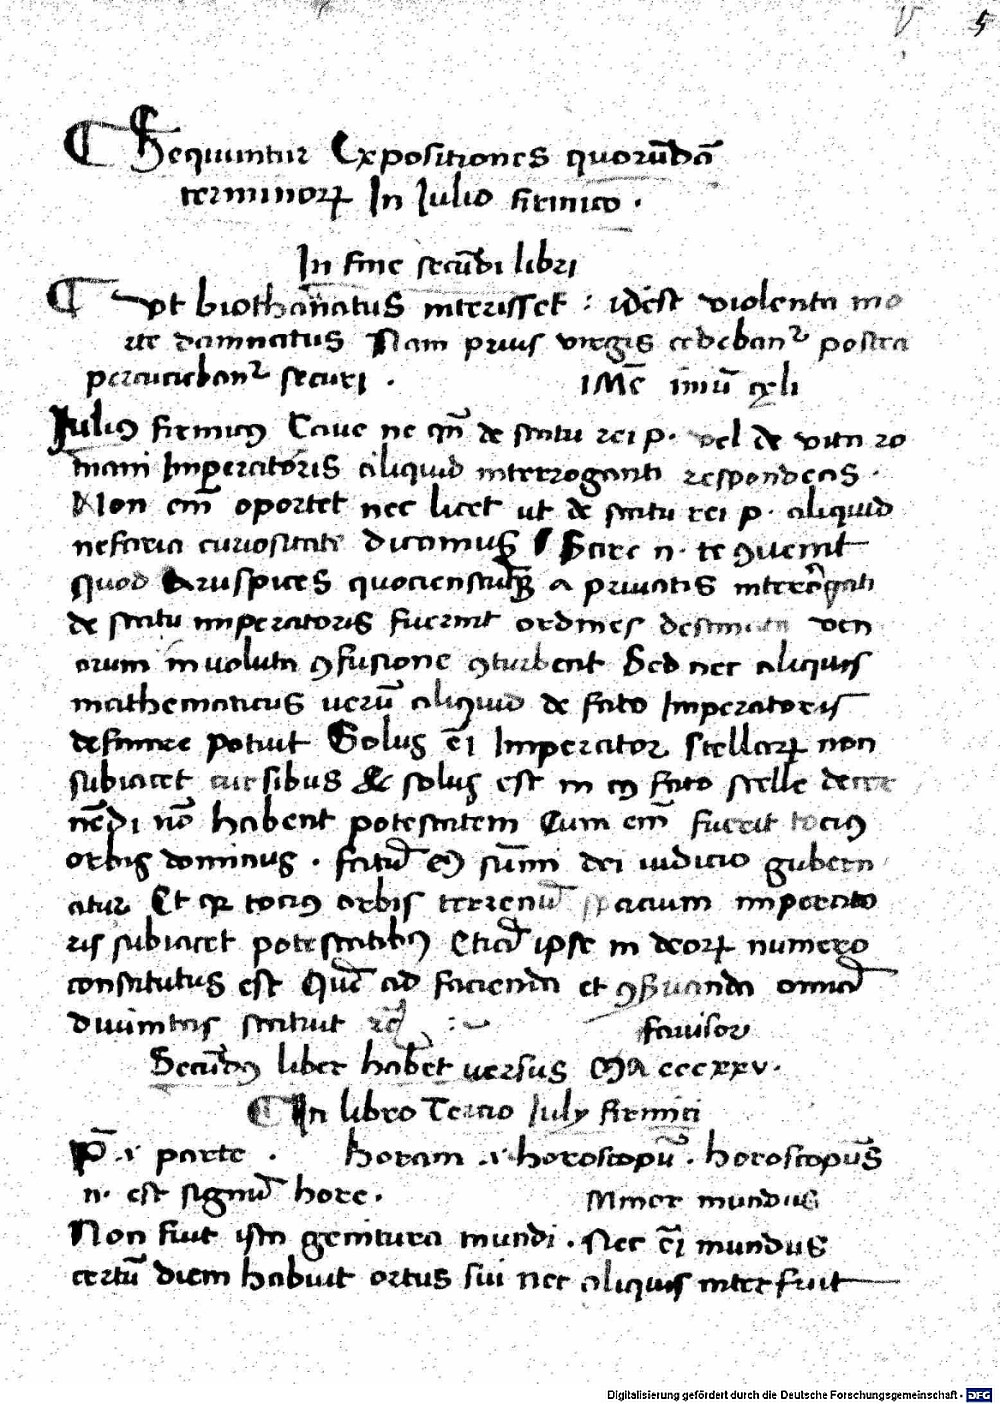 5
Sequuntur Expositiones quorūdā
terminoꝝ In Iulio firmico .
In fine secūdi libri
ut biothanatus interisset : idest violenta mo
rte damnatus Nam prius virgis cedebanᷣ postea
percuciebanᷣ securi .
Iuliꝰ firmicꝰ Caue ne qn̄ de statu rei p. vel de vita ro
mani Imperatoris aliquid interroganti respondeas .
Non em̄ oportet nec licet ut de statu rei p. aliquid
nefaria curiositate dicamus Scire n. te ꝯuenit
quod Aruspices quocienscūqꝫ a priuatis interrogati
de statu imperatoris fuerint ordines destinata ven
arum inuoluta ꝯfusione ꝯturbent Sed nec aliquis
mathematicus uerū aliquid de fato Imperatoris
definire potuit Solus e͞i Imperator stellaꝝ non
subiacet cursibus & solus est in cꝰ fato stelle decer
nēdi nō habent potestatem Cum em̄ fuerit tociꝰ
orbis dominus . fatū eꝰ sūmi dei iudicio gubern
atur Et qꝛ tociꝰ orbis terrenū spacium imperato
ris subiacet potestatibꝰ Eciā ipse in deoꝝ numero
constitutus est Quē ad facienda et ꝯseruanda omnia
diuinitas statuit
fauisor
Secūdꝰ liber habet uersus Mᵃ ccccxxv.
In libro Tercio Iuly firmici
P̄ .i. parte . horam .i. horoscopū . horoscopus
n. est signū hore .
Minor mundus
Non fuit ista genitura mundi . Nec e͞i mundus
certū diem habuit ortus sui nec aliquis interfuit
Digitalisierung gefördert durch die Deutsche Forschungsgemeinschaft - DFG